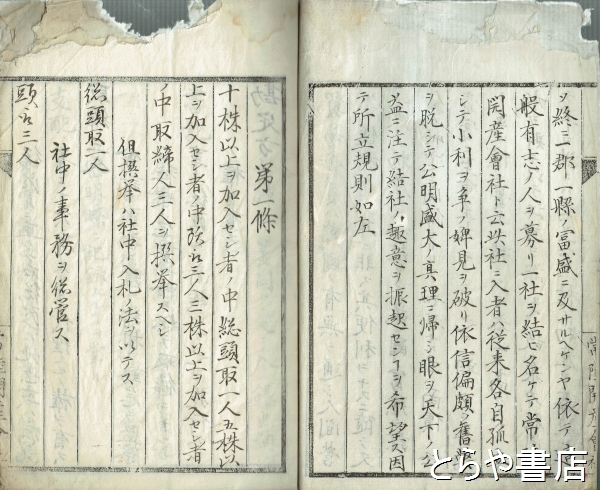 ヲ終ニ一郡一縣ノ富盛ニ及サルヘケンヤ依テ
般有志ノ人ヲ募リ一社ヲ結ヒ名ケテ常
開産會社ト云此社ニ入者ハ従来各自孤
シテ小利ヲ争ノ婢見ヲ破リ依信偏頗ノ舊
ヲ脱シテ公明盛大ノ真理ニ帰シ眼ヲ天下ノ公
益ニ注テ結社ノ趣意ヲ振起センヿヲ希望ス因
テ所立規則如左
第一條
十株以上ヲ加入セシ者ノ中総頭取一人五株以
上ヲ加入セシ者ノ中 三人三株以上ヲ加入セシ者
ノ中取締人三人ヲ撰挙スヘシ
但撰挙ハ社中入札ノ法ヲ以テス
総頭取一人
社中ノ事務ヲ総管ス
頭取三人
とらや書店